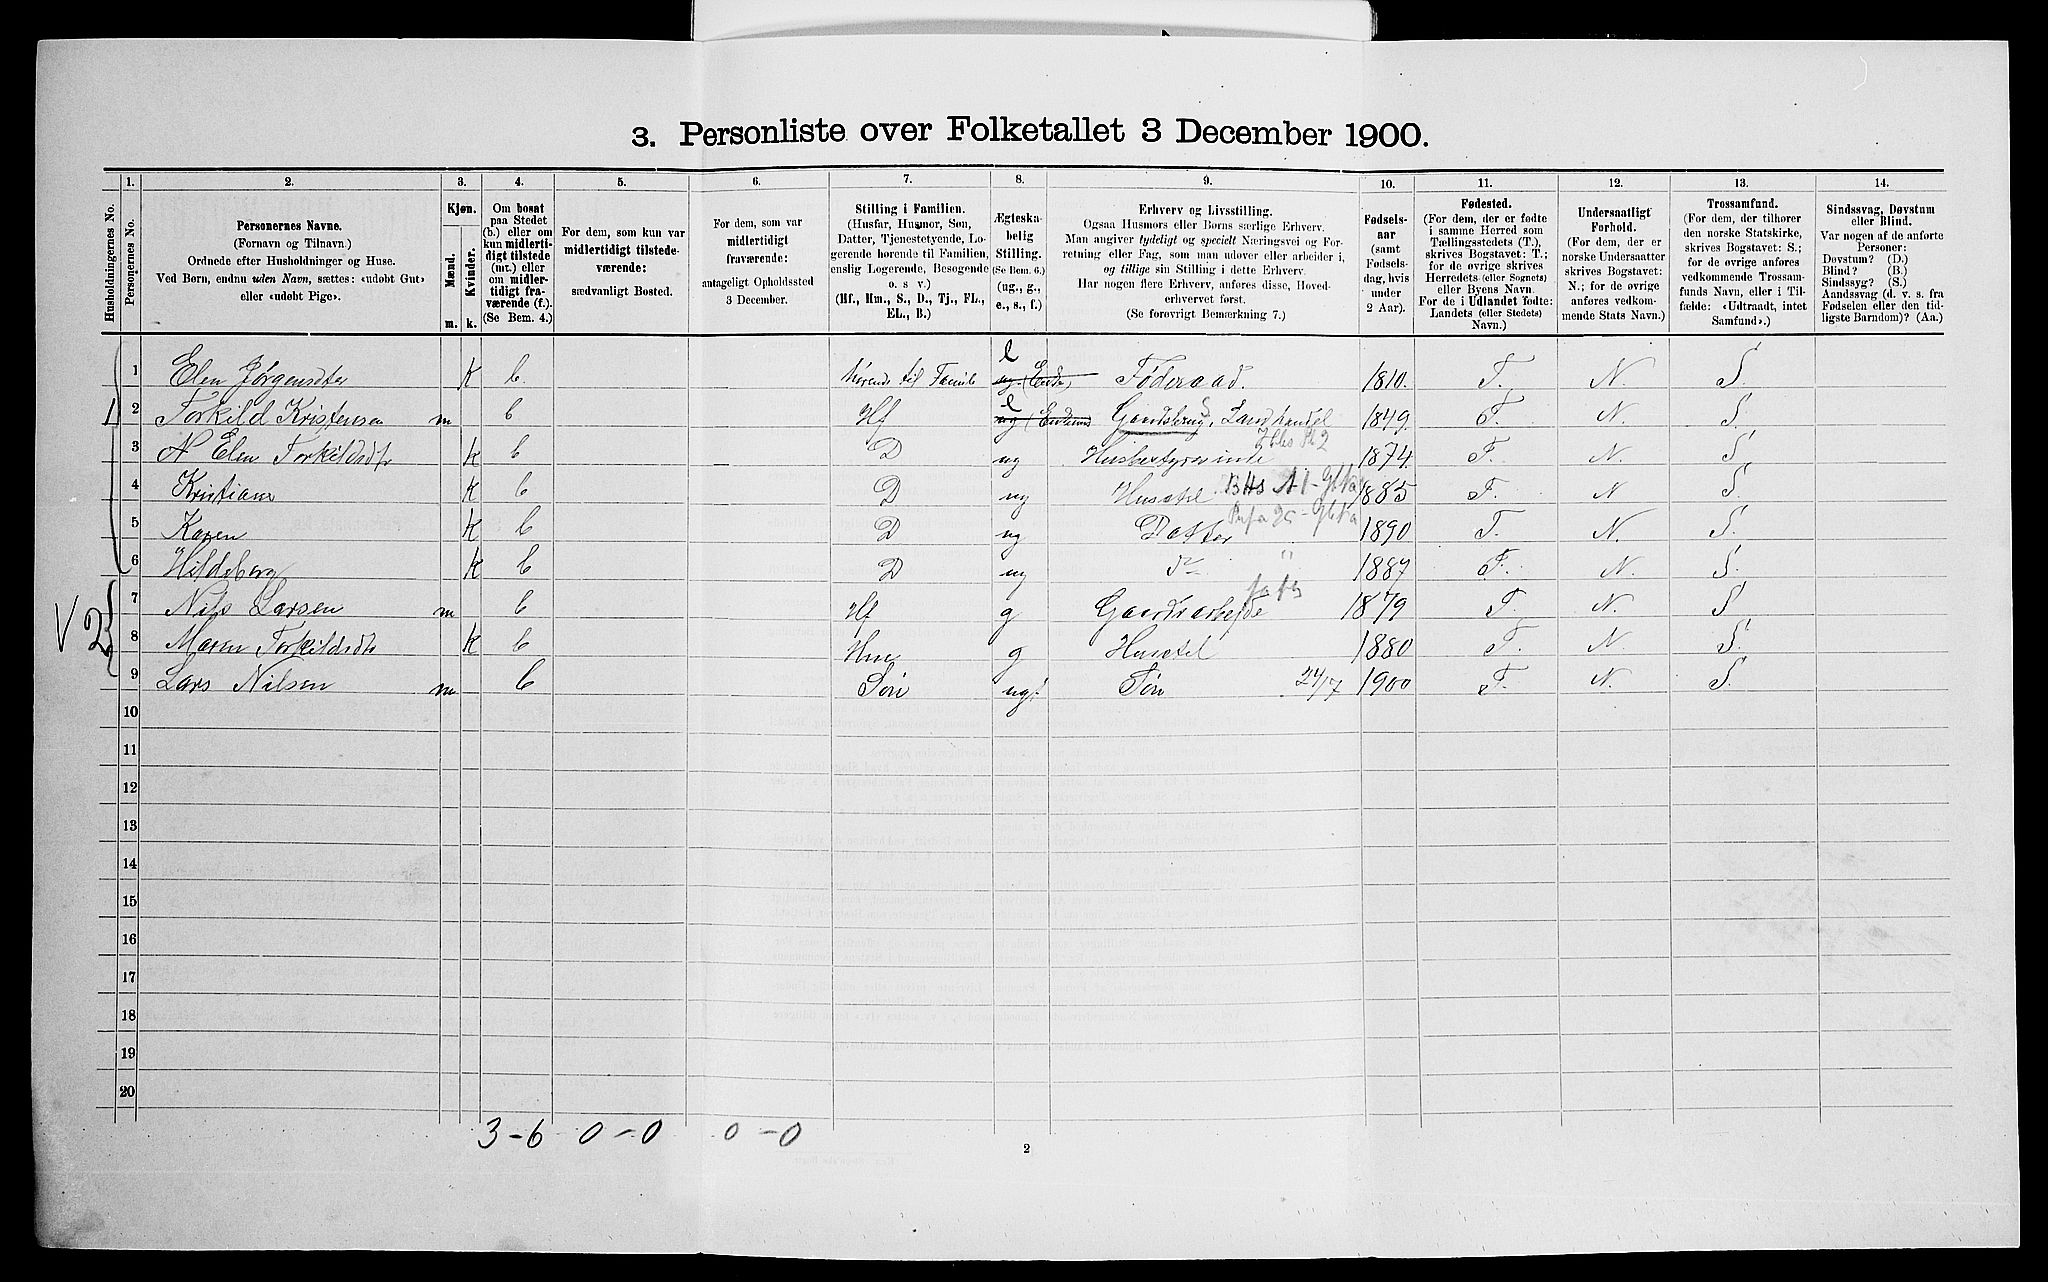 3. Personliste over Folketallet 3 December 1900.
Husholdningernes No.
1.
Personernes No.
2.
Personernes Navne.
(Fornavn og Tilnavn.)
Ordnede efter Husholdninger og Huse.
Ved Børn, endnu uden Navn, sættes: «udøbt Gut»
eller «udøbt Pige».
3.
Kjøn.
Mænd.
Kvinder.
m. k.
4.
Om bosat
paa Stedet
(b.) eller om
kun midlerti-
digt tilstede
(mt.) eller
om midler-
tidigt fra-
værende (f.).
(Se Bem. 4.)
5.
For dem, som kun var
midlertidigt tilstede-
værende:
sædvanligt Bosted.
6.
For dem, som var
midlertidigt
fraværende:
antageligt Opholdssted
3 December.
7.
Stilling i Familien.
(Husfar, Husmor, Søn,
Datter, Tjenestetyende, Lo-
gerende hørende til Familien,
enslig Logerende, Besøgende
o. s. v.)
(Hf., Hm., S., D., Tj., FL.,
EL., B.)
8.
Ægteska-
belig
Stilling.
(Se Bem. 6.)
(ug., g.,
e., s., f.)
9.
Erhverv og Livsstilling.
Ogsaa Husmors eller Børns særlige Erhverv.
Man angiver tydeligt og specielt Næringsvei og For-
retning eller Fag, som man udøver eller arbeider i,
og tillige sin Stilling i dette Erhverv.
Har nogen flere Erhverv, anføres disse, Hoved-
erhvervet først.
(Se forøvrigt Bemærkning 7.)
10.
Fødsels-
aar
(samt
Fødsels-
dag, hvis
under
2 Aar).
11.
Fødested.
(For dem, der er fødte
i samme Herred som
Tællingsstedets (T.),
skrives Bogstavet: T.;
for de øvrige skrives
Herredets (eller Sognets)
eller Byens Navn.
For de i Udlandet fødte:
Landets (eller Stedets)
Navn.)
12.
Undersaatligt
Forhold.
(For dem, der er
norske Undersaatter
skrives Bogstavet:
N.; for de øvrige
anføres vedkom-
mende Stats Navn.)
13.
Trossamfund.
(For dem, der tilhører
den norske Statskirke,
skrives Bogstavet: S.;
for de øvrige anføres
vedkommende Trossam-
funds Navn, eller i Til-
fælde: «Udtraadt, intet
Samfund».)
14.
Sindssvag, Døvstum
eller Blind.
Var nogen af de anførte
Personer:
Døvstum? (D.)
Blind? (B.)
Sindssyg? (S.)
Aandssvag (d. v. s. fra
Fødselen eller den tid-
ligste Barndom)? (Aa.)
1 Elen Jørgensdtr K b hørende til Famile e ug. Føderaad. 1810. T. N. S.
1 2 Torkild Kristensen m b Hf e ug Gaardsbrug, Landhandel 1849. T. N. S.
3 N Elen Torkildsdtr k b D ug Husbestyrerinde 1874. T. N. S.
4 Kristiane K b D ug Husstel 1885 T. N S.
5 Karen K b D ug Datter 1890 T. N. S.
6 Hildeborg K b D ug 1887 T. N. S.
V 2 7 Nils Larsen m b Hf g Gaardsarbejde 1879 T. N. S
8 Maren Torkildsdtr K b Hm g Husstel 1880 T. N. S.
9 Lars Nilsen m b Søn ug. Søn 24/7 1900 T. N. S.
10
11
12
13
14
15
16
17
18
19
20
3-6 0-0 0-0
2